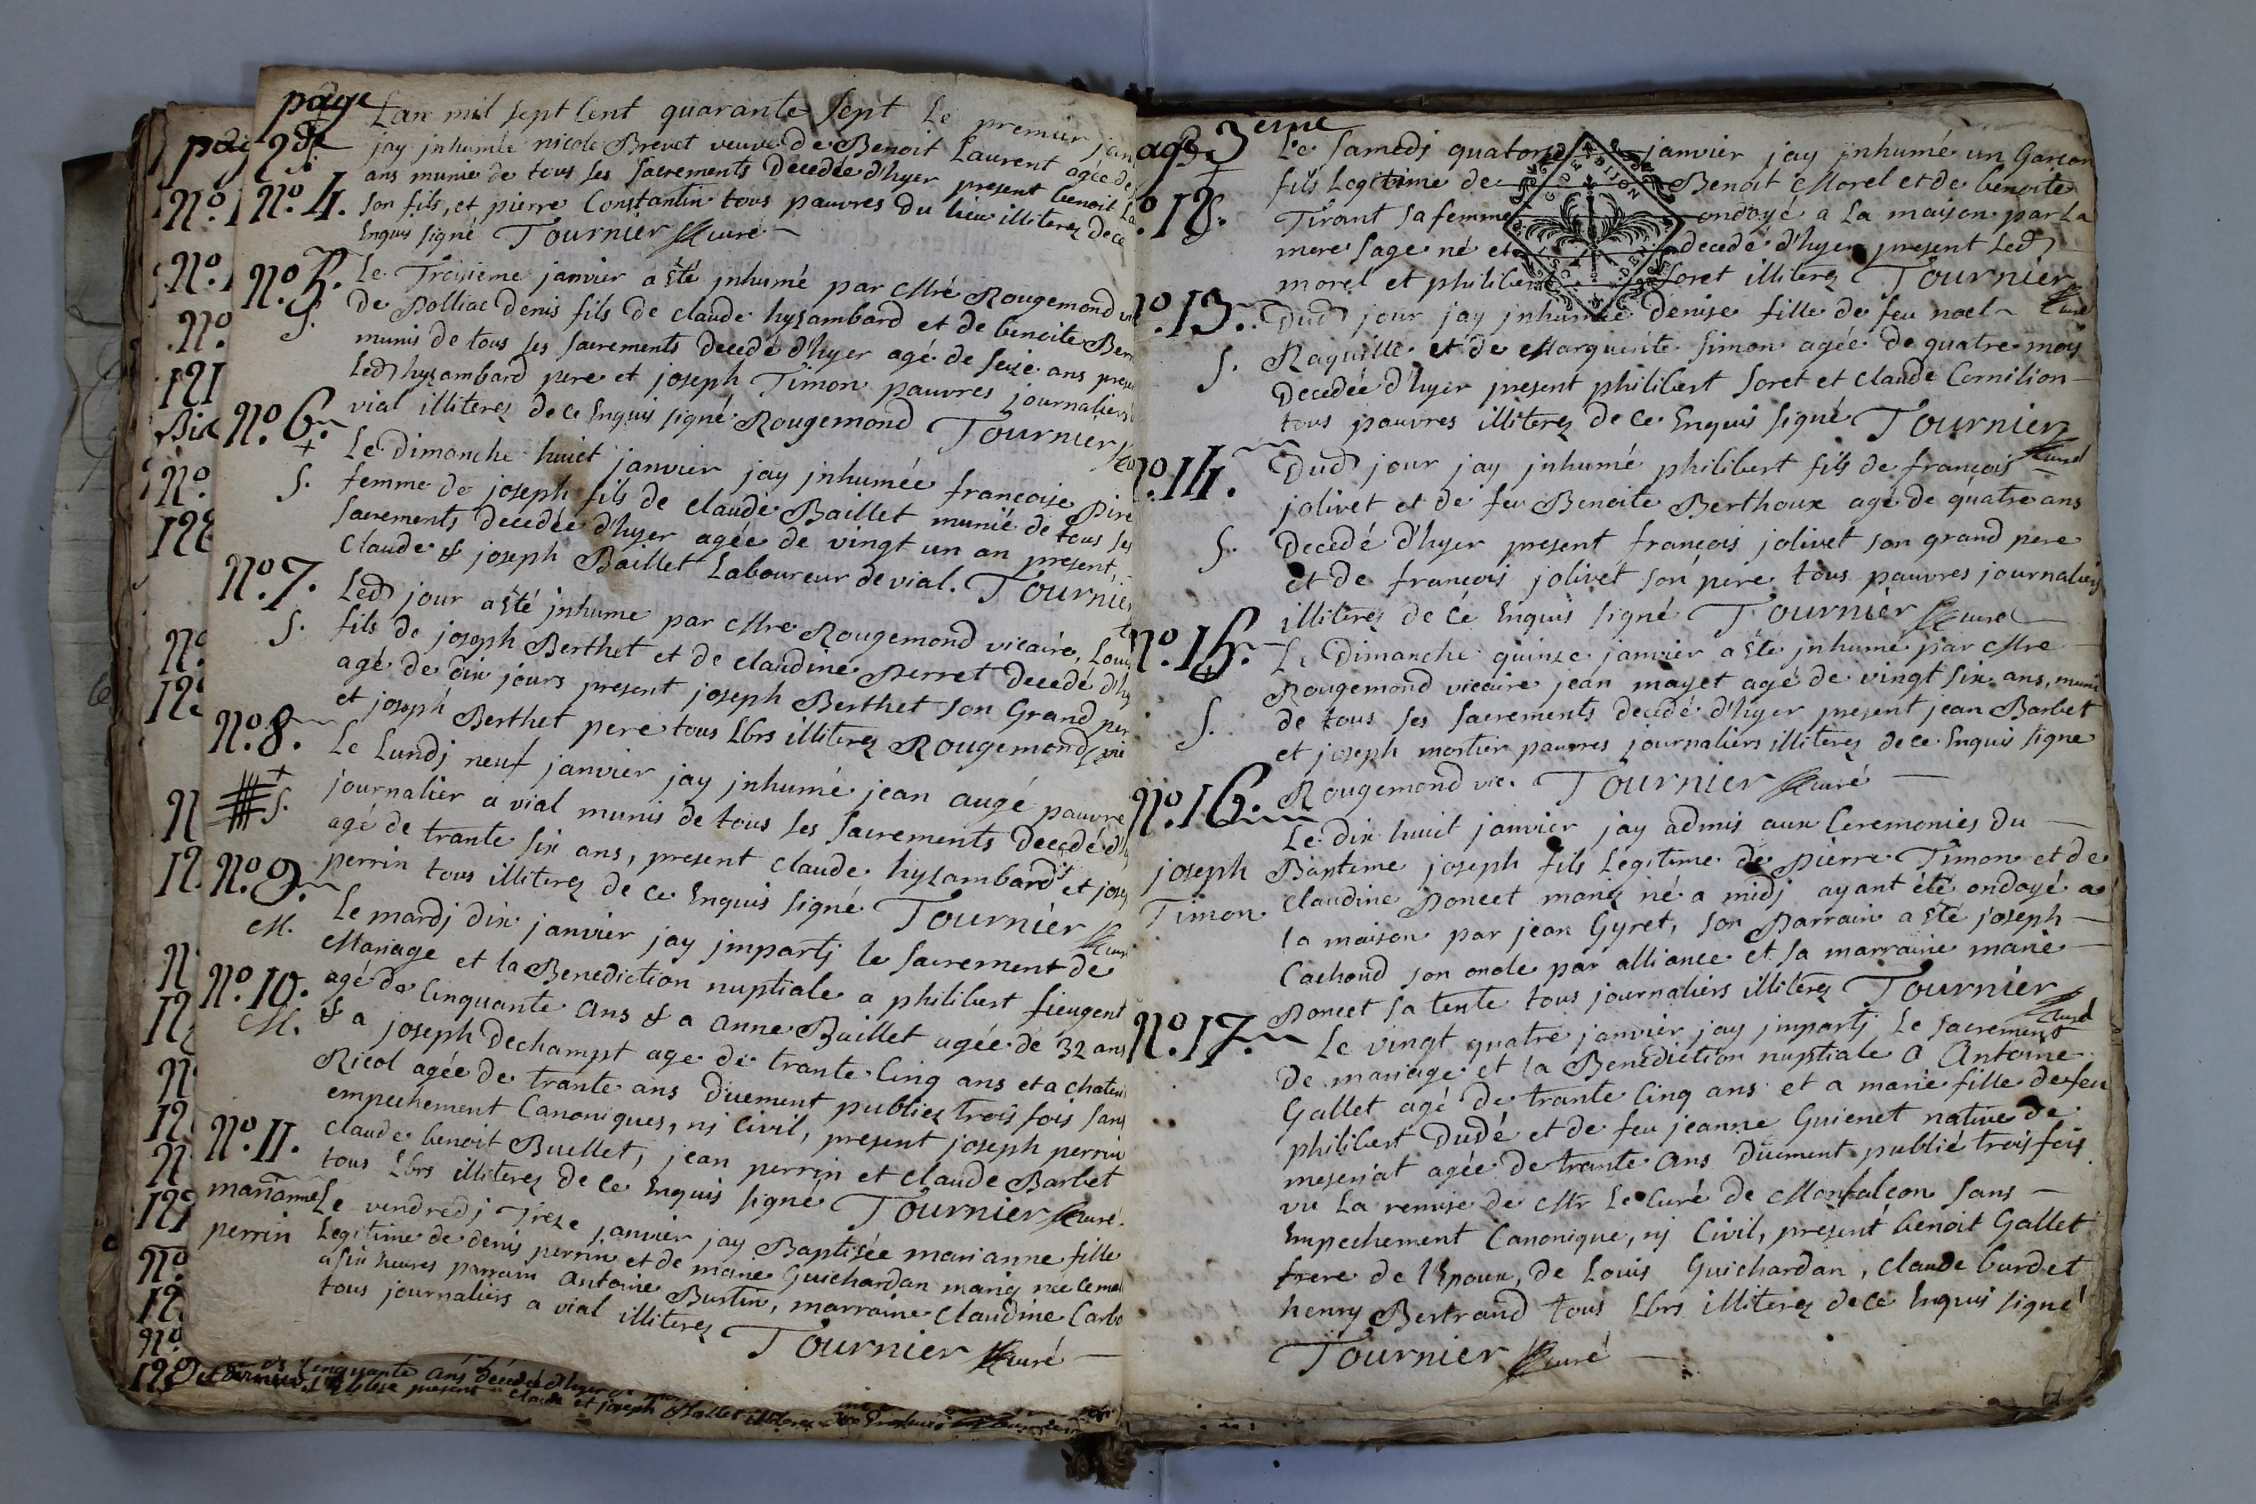 page
2de
Lan mil sept Cent quarante Sept Le premier jan
jay jnhumée nicole Brevet veuve de Benoit Laurent agée de
No. 4.
ans munie de tous ses Sacrements Decedée d'hyer present benoit La
son fils, et pierre Constantin tous pauvres du lieu illiterez de ce
Enquis signé Tournier curé
No. 5.
S.
Le Troisieme janvier a été jnhumé par Mre Rougemond
de Polliac denis fils de claude hyzambard et de benoite Bern
munis de tous ses sacrements Decedé d'hyer agé de seize ans
Led hyzambard pere et joseph Timon pauvres journaliers
vial illiterez de ce Enquis signé Rougemond Tournier
No. 6.
S.
Le Dimanche huict janvier jay jnhumée francoise
femme de joseph fils de claude Baillet munie de tous ses
sacrements decedée d'hyer agée de vingt un an present,
Claude & joseph Baillet Laboureur de vial. Tournier
No. 7.
S.
Led jour a été jnhume par Mre Rougemond vicaire, Louis
fils de joseph Berthet et de claudine Perret decede d'hy
agé de dix jours present joseph Berthet son Grand per
et joseph Berthet pere tous Lbrs illiterez Rougemond vic
No. 8.
S.
Le Lundj neuf janvier jay jnhumé jean augé pauvre
journalier a vial munis de tous ses sacrements Decedé d'hy
agé de trante six ans, present claude hyzambard et jose
perrin tous illiterez de ce Enquis signé Tournier curé
No. 9.
M.
Le mardj dix janvier jay jmpartj le sacrement de
Mariage et la Benediction nuptiale a philibert fieugent
agé de Cinquante ans & a anne Baillet agée de 32 ans
No. 10.
M.
& a joseph Dechampt age de trante Cinq ans et a
Ricol agée de trante ans Duement publiez trois fois sans
empechement Canoniques, nj Civil, present joseph perrin
claude benoit Buellet, jean perrin et claude Barbet
tous Lbrs illiterez de ce Enquis signé Tournier curé.
No. 11.
marianne
perrin
Le vendredj Treze janvier jay Baptisée marianne fille
Legitime de denis perrin et de marie Guichardan mariez née
a six heures parrain Antoine Burtin, marraine Claudine Carbo
tous journaliers a vial illiterez Tournier curé
Cinquante ans decedé d'hyer
present Claude et joseph
age 3eme
No. 12.
S.
Le Samedj quatorze janvier jay jnhumé un Garcon
fils Legitime de Benoit Morel et de benoite
Tirant sa femme ondoyé a La maison par La
mere sage né et decedé d'hyer present Led
morel et philibert Soret illiterez Tournier curé
GE DE DIJON
No. 13.
S.
Dud jour jay jnhumée denise fille de feu noel
Raquille et de Marguerite Simon agée de quatre mois
Decedée d'hyer present philibert Soret et Claude Cornilion
tous pauvres illiterez de ce Enquis signé Tournier curé
No. 14.
S.
Dud jour jay jnhumé philibert fils de francois
jolivet et de feu Benoite Berthoux agé de quatre ans
Decedé d'hyer present francois jolivet son grand pere
et de francois jolivet son pere tous pauvres journaliers
illiterez de ce Enquis signé Tournier curé
No. 15.
S.
Le Dimanche quinze janvier a été jnhumé par Mre
Rougemond vicaire jean mayet agé de vingt six ans, muni
de tous ses sacrements decedé d'hyer present jean Barbet
et joseph mortier pauvres journaliers illiterez de ce Enquis signe
Rougemond vic. Tournier curé
No. 16.
joseph
Timon
Le dix huit janvier jay admis aux Ceremonies du
Baptême joseph fils Legitime de pierre Timon et de
claudine Poncet mariez né a midj ayant été ondoyé a
la maison par jean Gyret, son Parrain a été joseph
Cachoud son oncle par alliance et sa marraine marie
Poncet sa tente tous journaliers illiterez Tournier curé
No. 17.
Le vingt quatre janvier jay jmpartj Le sacrement
de mariage et la Benediction nuptiale a Antoine
Gallet agé de trante Cinq ans et a marie fille de feu
philibert Dudé et de feu jeanne Guienet native de
meseriat agée de trante ans Duement publié trois fois
vu La remise de Mr Le Curé de Monfalcon sans
Empechement Canonique, nj Civil, present benoit Gallet
frere de l'Epoux, de Louis Guichardan, claude burdet
henry Bertrand tous Lbrs illiterez de ce Enquis signé
Tournier curé